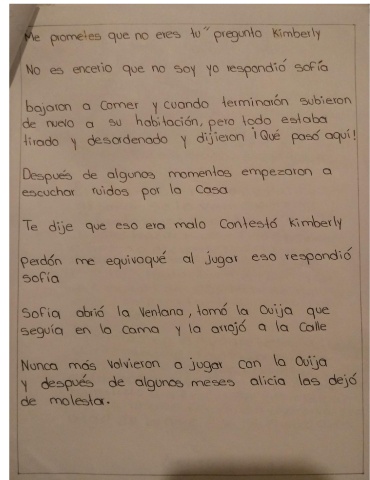 Me prometes que no eres tu" pregunto Kimberly
No es encerio que no soy yo respondió sofía
bajaron a comer y cuando terminarón subieron
de nuevo a su habitación, pero todo estaba
tirado y desordenado y dijieron ¡Qué pasó aquí!
Después de algunos momentos empezaron a
escuchar ruidos por la casa
Te dije que eso era malo Contestó Kimberly
Perdón me equivoqué al jugar eso respondió
sofía
Sofía abrió la ventana, tomó la Ouija que
seguía en la cama y la arrojó a la calle
Nunca más volvieron a jugar con la Ouija
y después de algunos meses alicia las dejó
de molestar.